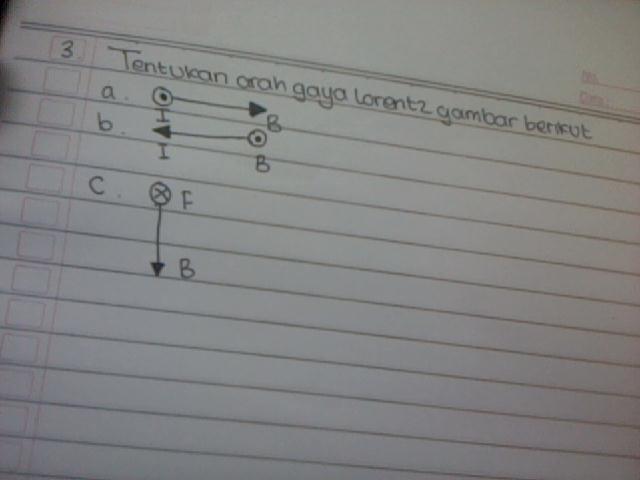 3. Tentukan arah gaya lorentz gambar berikut
a.
I B
b.
I B
C. F
B